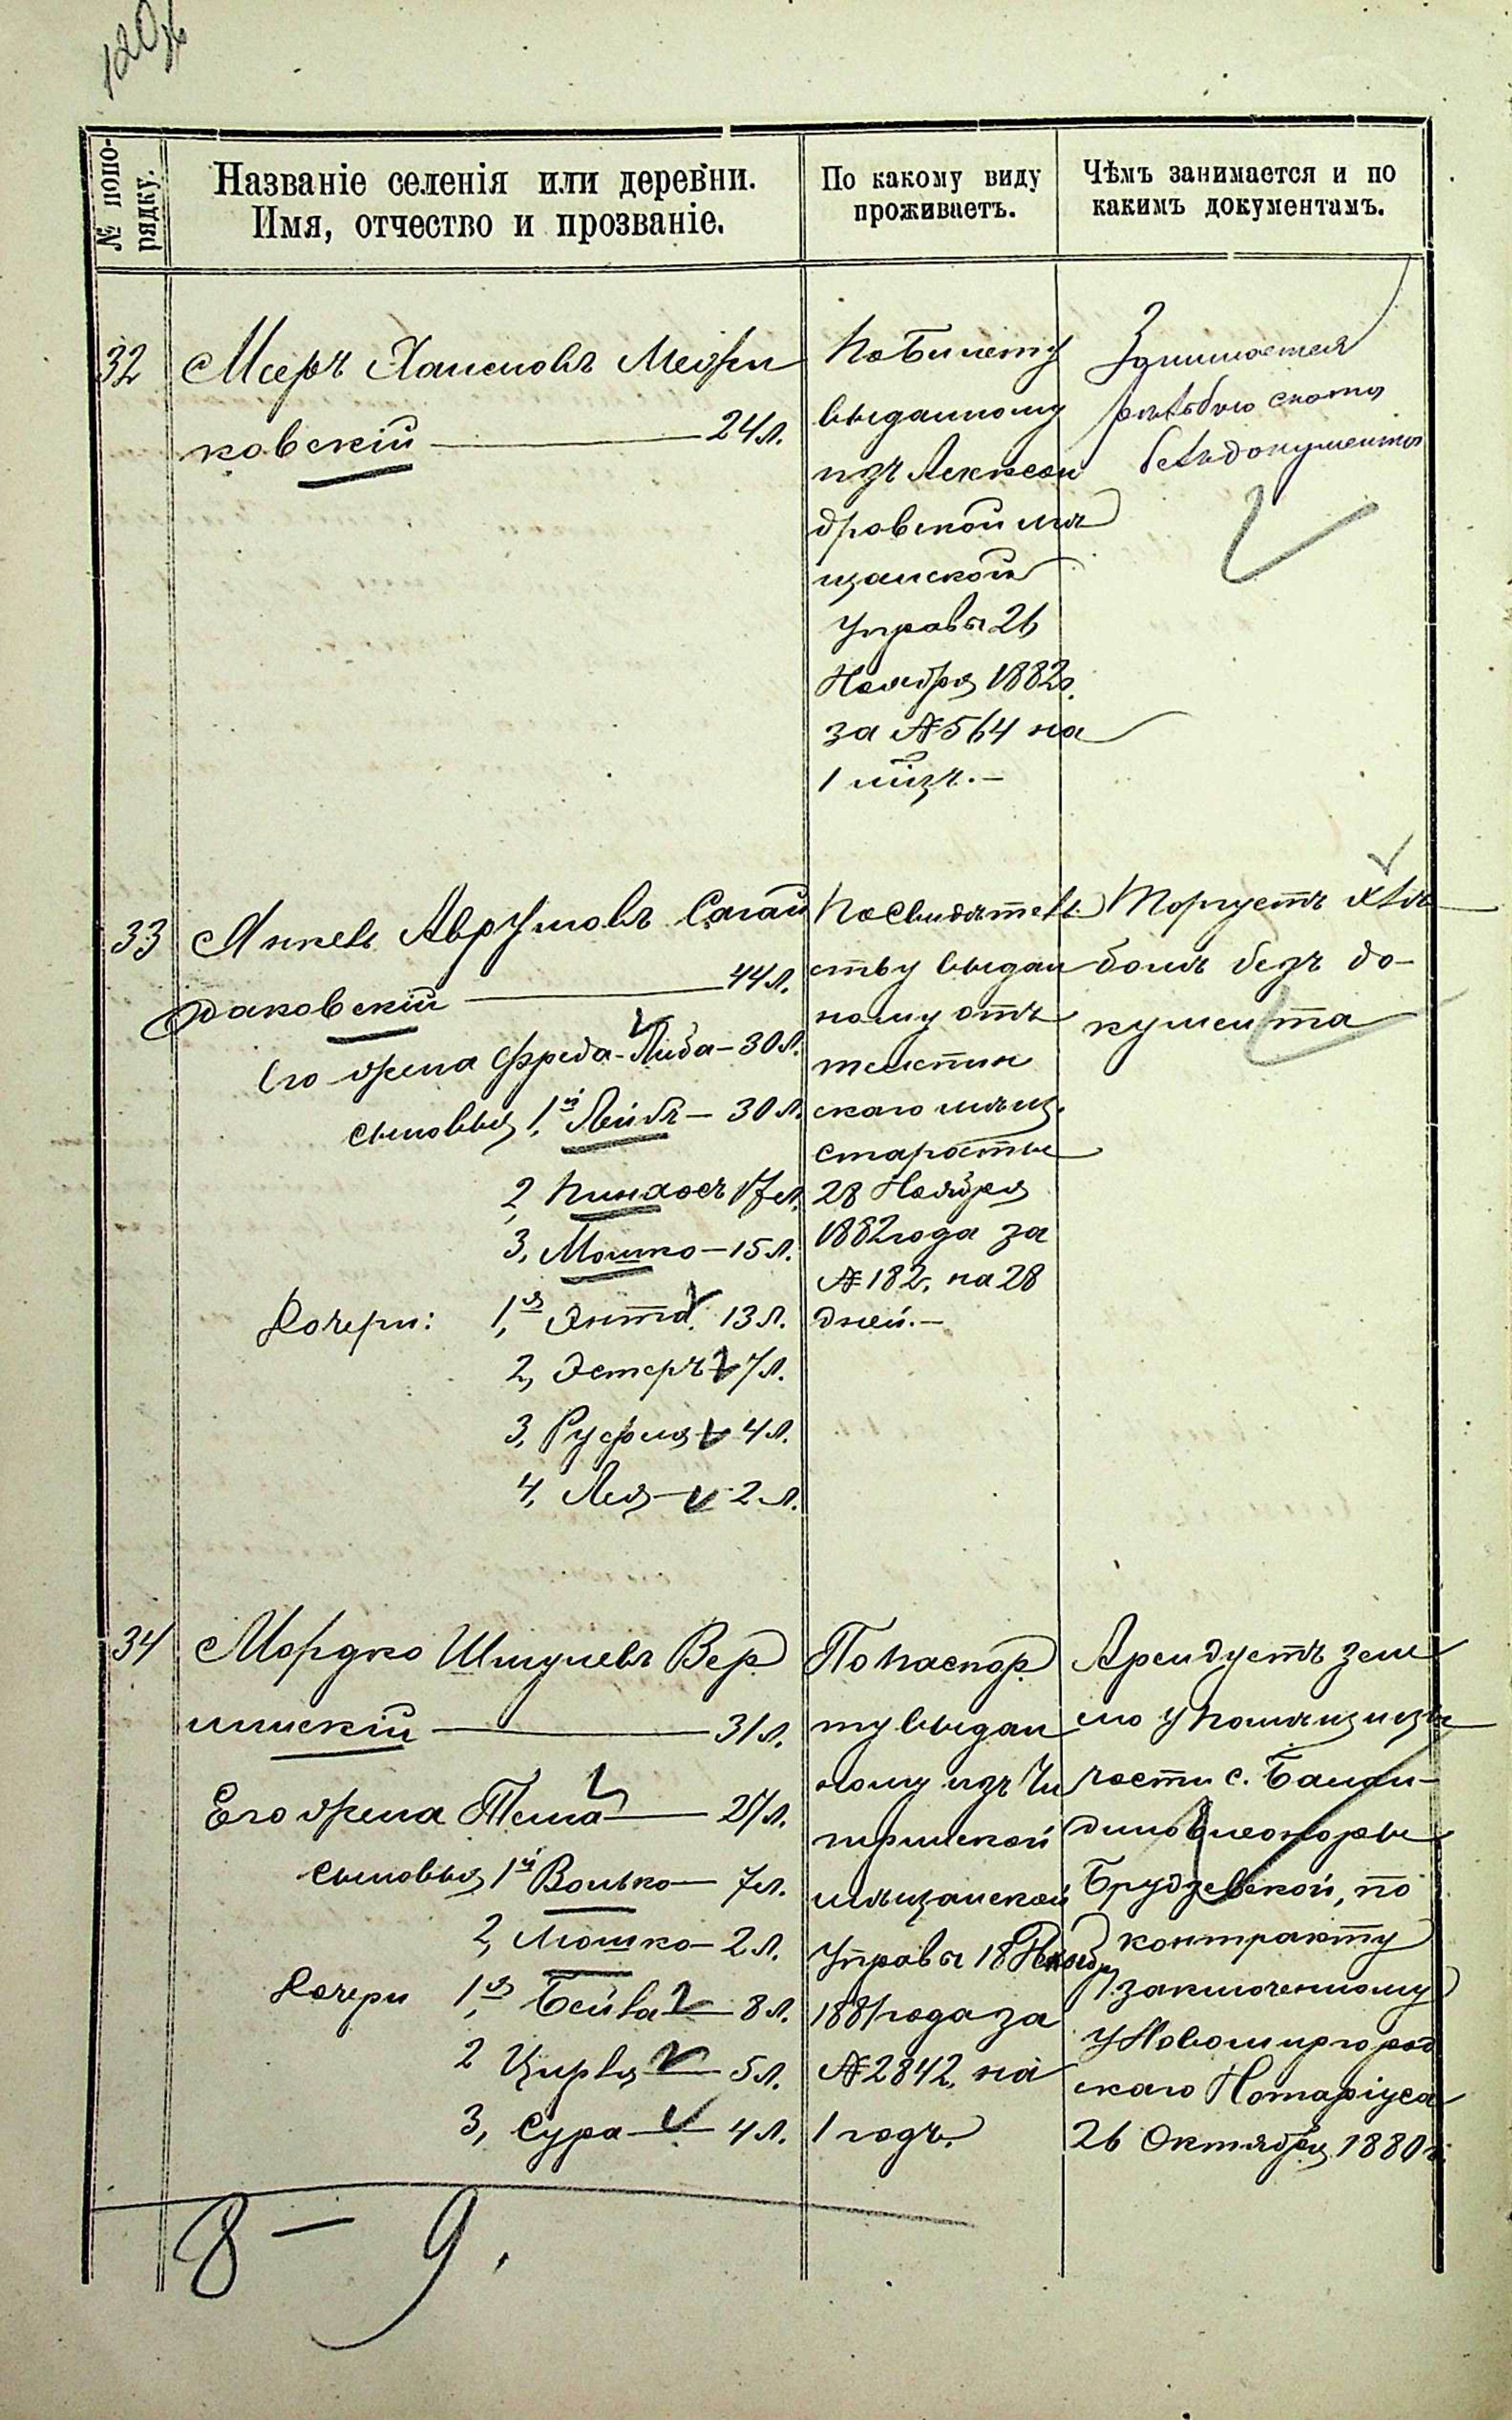 120об
№ попо-
рядку.
Названіе селенія или деревни.
Имя, отчество и прозваніе.
По какому виду
проживаетъ.
Чѣмъ занимается и по
какимъ документамъ.
32
Мееръ Хаимовъ
ковскій — 24 л.
По билету
выданному
изъ Алексан
дровской мѣ
щанской
Управы 26
Ноября 1882 г.
за № 564 на
1 міз.—
Занимается
рѣзьбою скота
безъ документа
33
Янкель Аврумовъ Сагай
даковскій — 44 л.
Его жена Фреда-Либа — 30 л.
сыновья 1й, Лейбъ — 30 л.
2, Пинхосъ 17 л.
3, Мошко — 15 л.
Дочери: 1я, Энта 13 л.
2, Эстеръ 7 л.
3, Руфля 4 л.
4, Лея — 2 л.
По свидѣтель
ству выдан
ному отъ
скаго мѣщ.
старосты
28 Ноября
1882 года за
№ 182, на 28
дней.—
Торгуетъ хлѣ
бомъ безъ до-
кумента
34
Мордко Шмулевъ Вер
шинскій — 31 л.
Его жена Тема — 27 л.
сыновья 1й Волько — 7 л.
2, Мошко — 2 л.
Дочери 1я, Бейла — 8 л.
2 Цирля — 5 л.
3, Сура — 4 л.
По паспор
ту выдан
ному изъ Чи
гиринской
мѣщанской
Управы 18 Ноября
1881 года за
№ 2842, на
1 годъ.
Арендуетъ зем
лю у помѣщицы
части с. Баман-
Брудзевской, по
контракту
заключенному
у Новомиргород
скаго Нотаріуса
26 Октября 1880 г.
8 — 9.